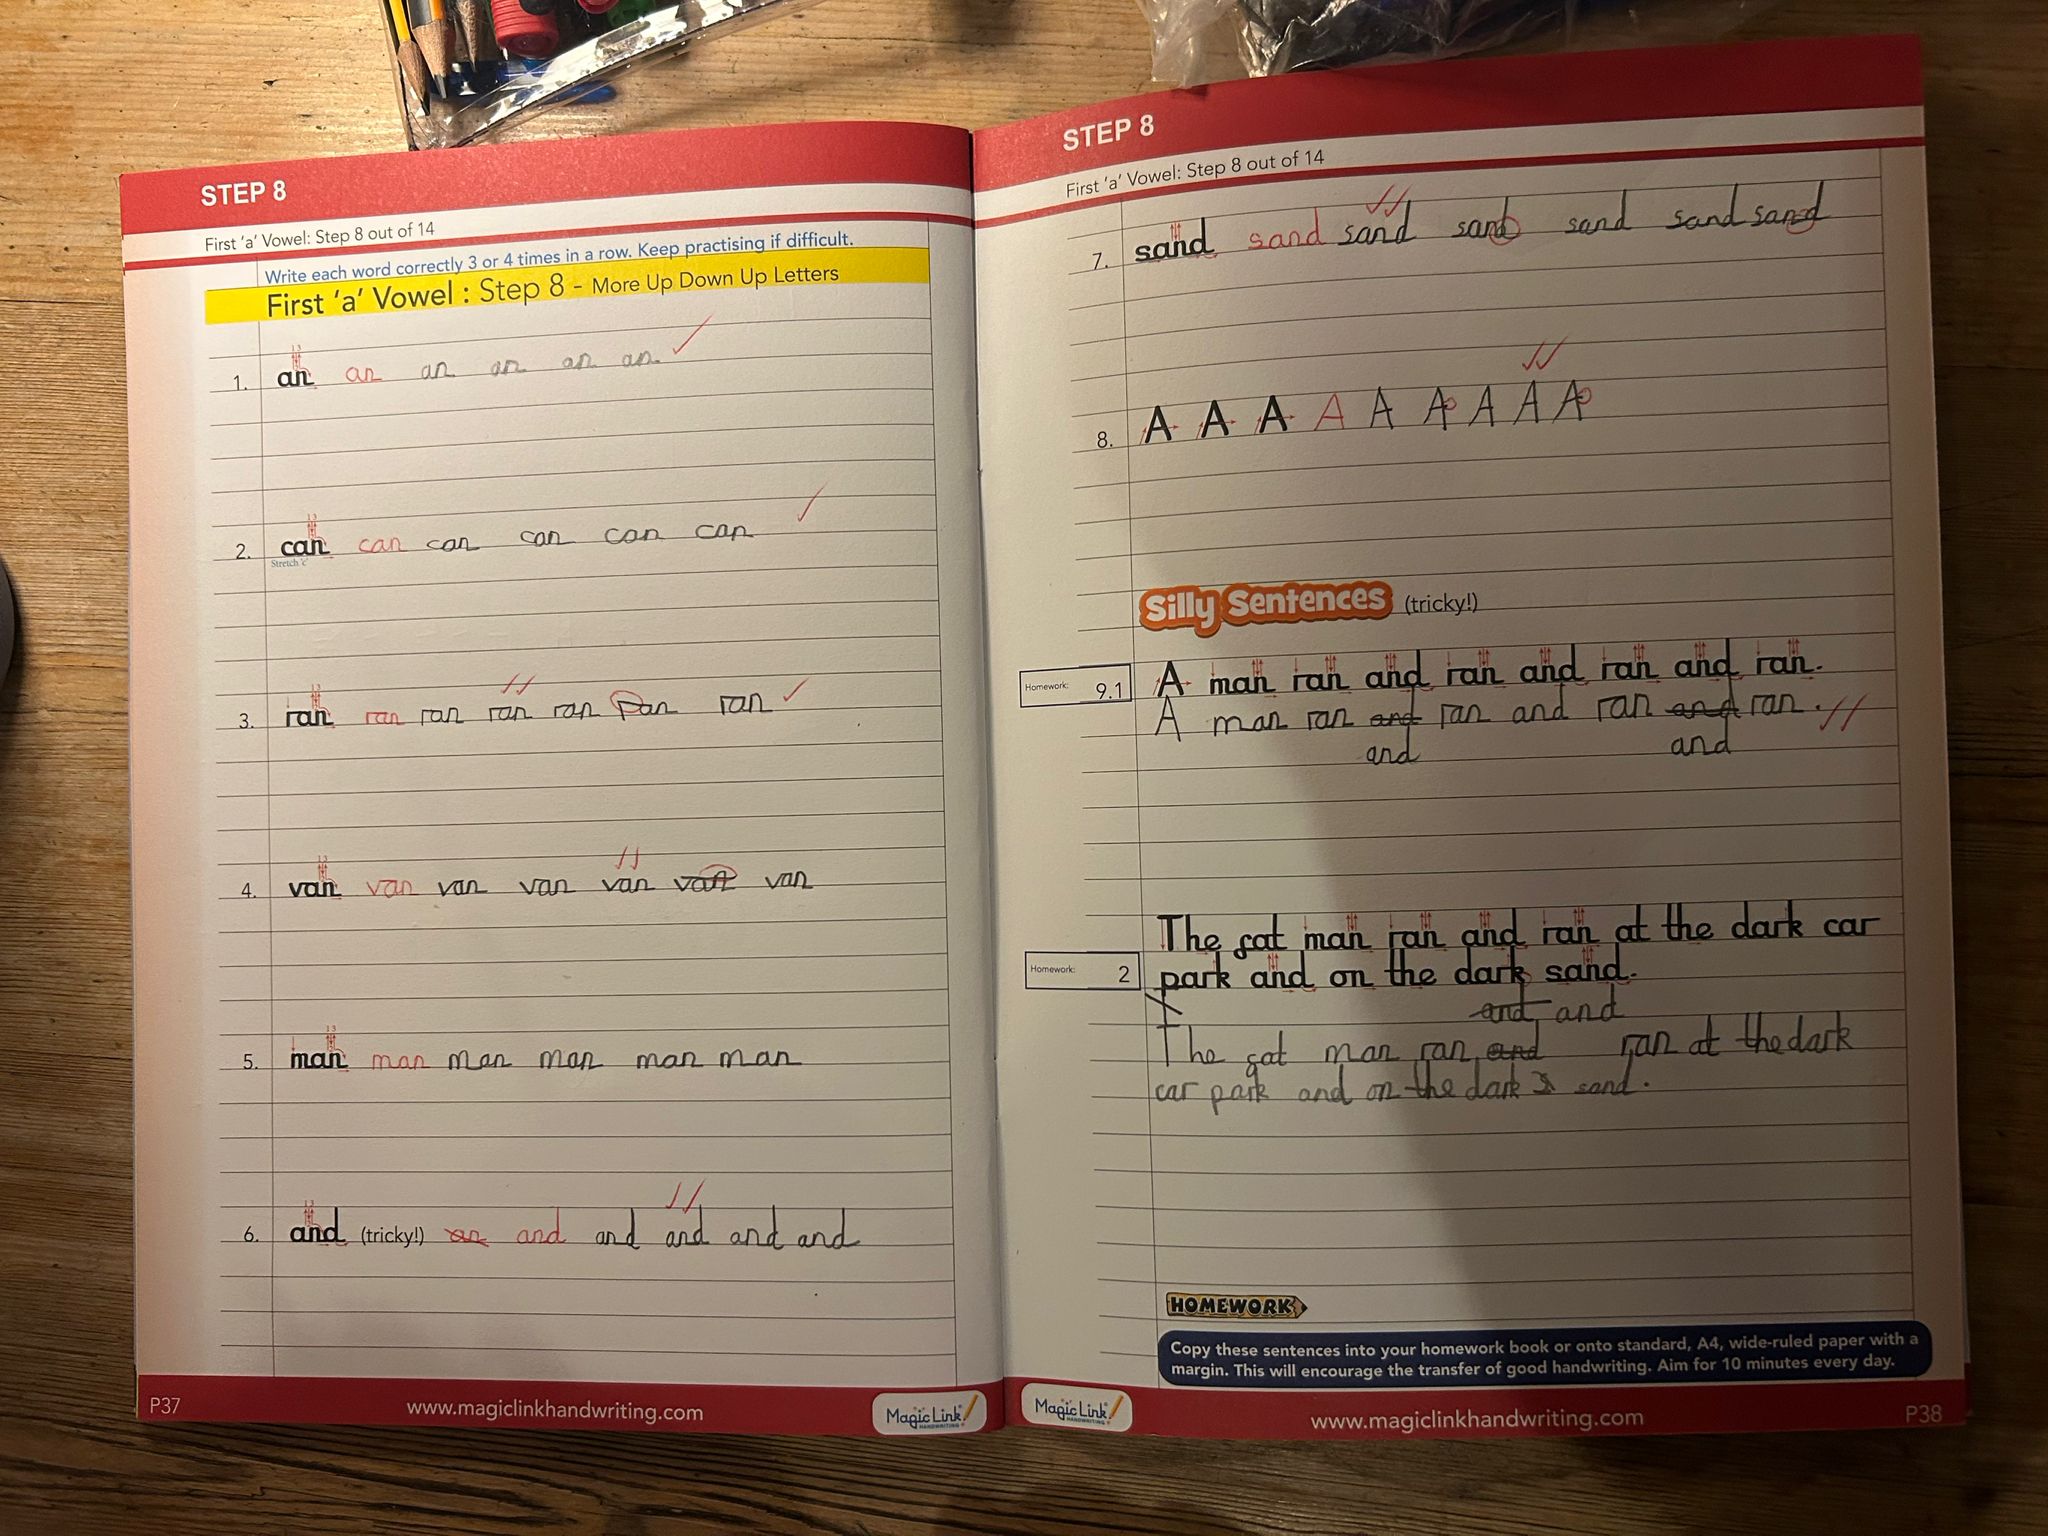 STEP 8
First 'a' Vowel: Step 8 out of 14
Write each word correctly 3 or 4 times in a row. Keep practising if difficult.
First 'a' Vowel : Step 8 - More Up Down Up Letters
1. an an an an an an
2. can can can can can can
Stretch 'c'
3. ran ran ran ran ran ran ran
4. van van van van van van van
5. man man man man man man
6. and (tricky!) an and and and and and
P37 www.magiclinkhandwriting.com MagicLink HANDWRITING
STEP 8
First 'a' Vowel: Step 8 out of 14
7. sand sand sand sand sand sand sand
8. A A A A A A A A A
Silly Sentences (tricky!)
Homework: 9.1 A man ran and ran and ran and ran.
A man ran and ran and ran and ran.
and and
The cat man ran and ran at the dark car
Homework: 2 park and on the dark sand.
and and
The cat man ran and ran at the dark
car park and on the dark s sand.
HOMEWORK
Copy these sentences into your homework book or onto standard, A4, wide-ruled paper with a
margin. This will encourage the transfer of good handwriting. Aim for 10 minutes every day.
MagicLink HANDWRITING www.magiclinkhandwriting.com P38